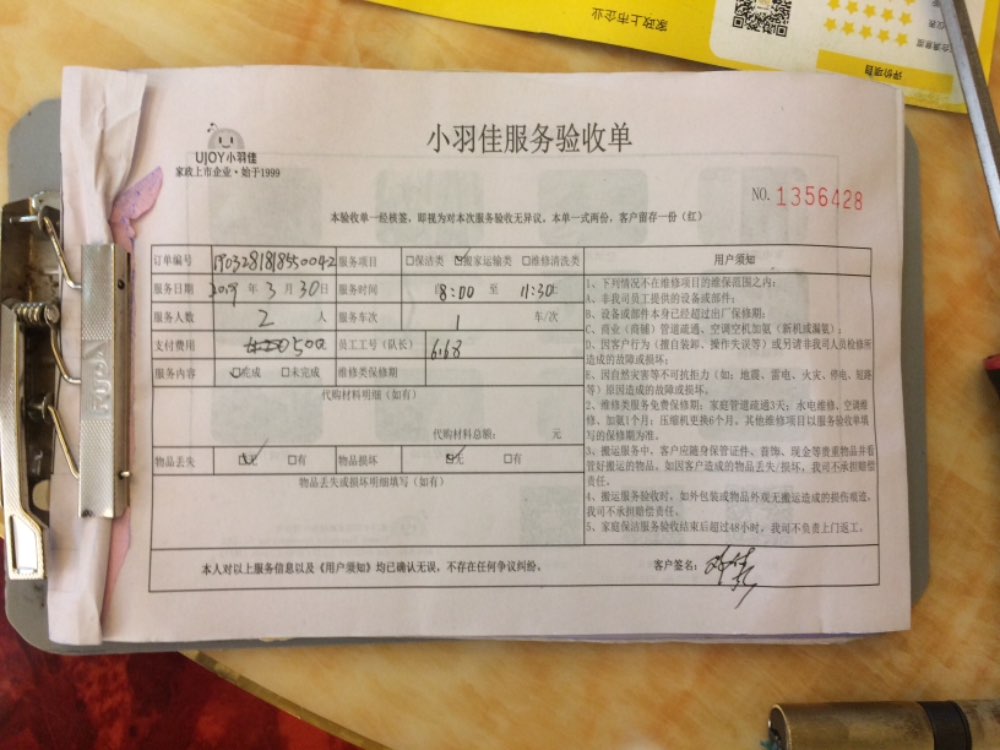 家政上市企业
评价项目
UJOY小羽佳
家政上市企业·始于1999
小羽佳服务验收单
NO. 1356428
本验收单一经核签，即视为对本次服务验收无异议。本单一式两份，客户留存一份（红）
订单编号 1903281818550042 服务项目 □保洁类 ☑搬家运输类 □维修清洗类 用户须知
服务日期 2019 年 3 月 30 日 服务时间 8:00 至 11:30
服务人数 2 人 服务车次 1 车/次
支付费用 500 员工工号（队长） 668
服务内容 ☑完成 □未完成 维修类保修期
代购材料明细（如有）
代购材料总额： 元
物品丢失 ☑无 □有 物品损坏 ☑无 □有
物品丢失或损坏明细填写（如有）
1、下列情况不在维修项目的维保范围之内：
A、非我司员工提供的设备或部件；
B、设备或部件本身已经超过出厂保修期；
C、商业（商铺）管道疏通、空调空机加氨（新机或漏氨）；
D、因客户行为（擅自装卸、操作失误等）或另请非我司人员检修所
造成的故障或损坏；
E、因自然灾害等不可抗拒力（如：地震、雷电、火灾、停电、短路
等）原因造成的故障或损坏。
2、维修类服务免费保修期：家庭管道疏通3天；水电维修、空调维
修、加氨1个月；压缩机更换6个月。其他维修项目以服务验收单填
写的保修期为准。
3、搬运服务中，客户应随身保管证件、首饰、现金等贵重物品并看
管好搬运的物品，如因客户造成的物品丢失/损坏，我司不承担赔偿
责任。
4、搬运服务验收时，如外包装或物品外观无搬运造成的损伤痕迹，
我司不承担赔偿责任。
5、家庭保洁服务验收结束后超过48小时，我司不负责上门返工。
本人对以上服务信息以及《用户须知》均已确认无误，不存在任何争议纠纷。 客户签名：